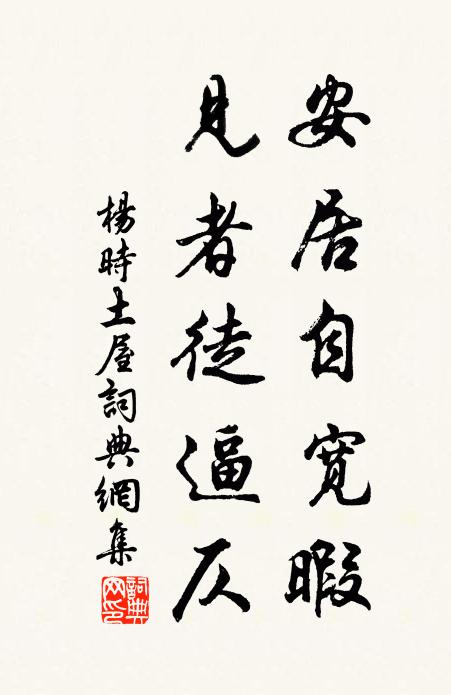 安居自寬暇
見者徒逼仄
楊時土屋詞典網集
詞典網印